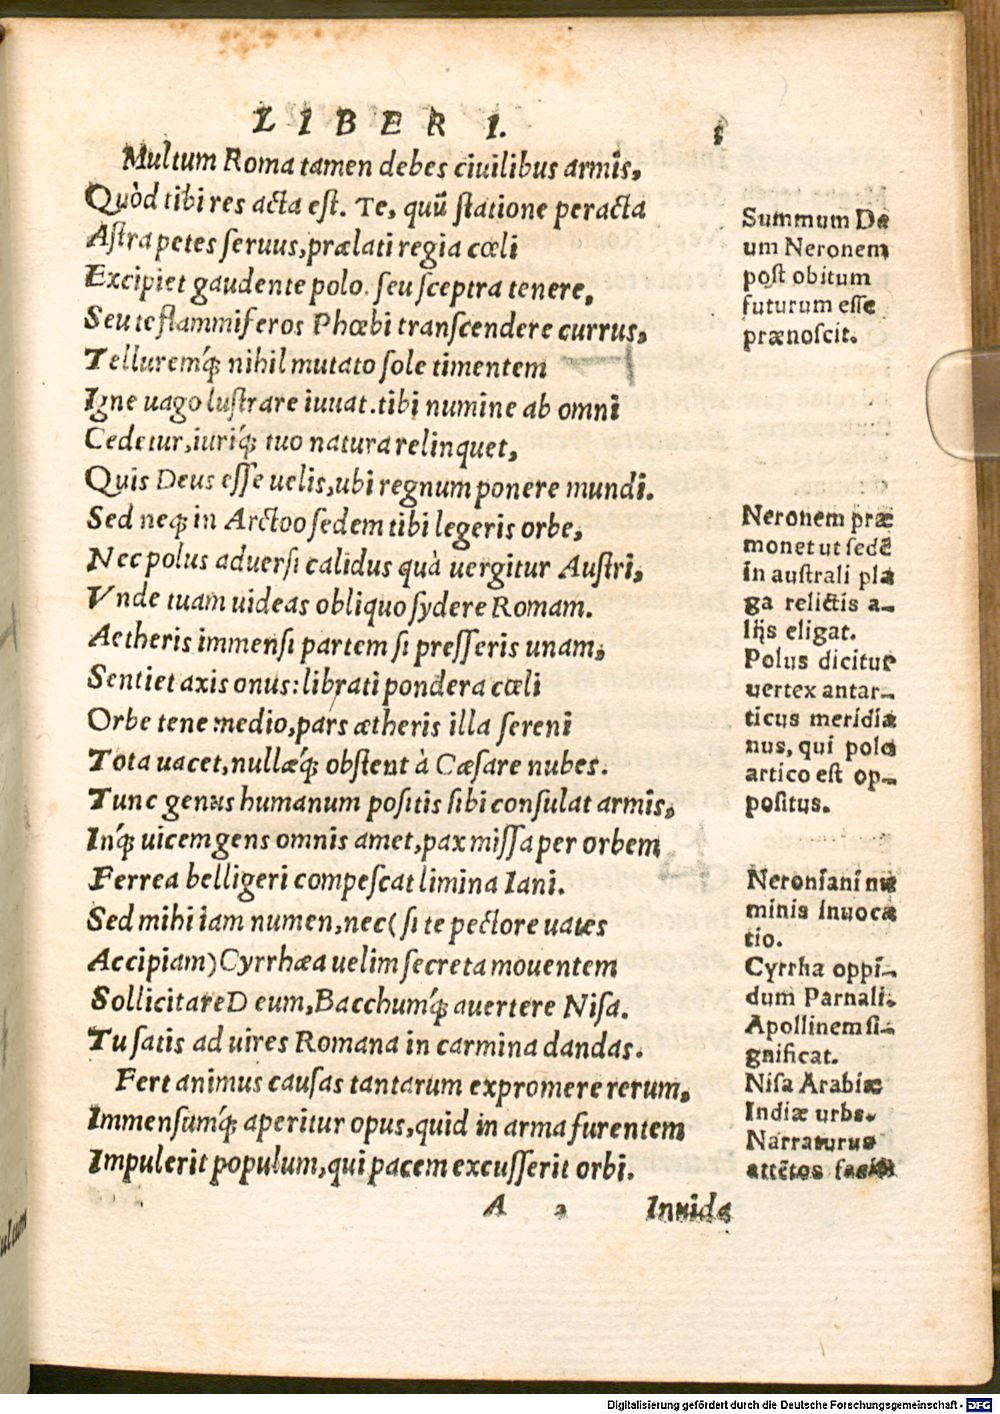 LIBER I.
Multum Roma tamen debes ciuilibus armis,
Quòd tibi res acta est. Te, quũ statione peracta
Astra petes seruus, prælati regia cœli
Excipiet gaudente polo. seu sceptra tenere,
Seu te flammiferos Phœbi transcendere currus,
Telluremq́ꝫ nihil mutato sole timentem
Igne uago lustrare iuuat. tibi numine ab omni
Cedetur, iuriq́ꝫ tuo natura relinquet,
Quis Deus esse uelis, ubi regnum ponere mundi.
Sed neqꝫ in Arctoo sedem tibi legeris orbe,
Nec polus aduersi calidus quà uergitur Austri,
Vnde tuam uideas obliquo sydere Romam.
Aetheris immensi partem si presseris unam,
Sentiet axis onus: librati pondera cœli
Orbe tene medio, pars ætheris illa sereni
Tota uacet, nullæq́ꝫ obstent à Cæsare nubes.
Tunc genus humanum positis sibi consulat armis,
Inq́ꝫ uicem gens omnis amet, pax missa per orbem
Ferrea belligeri compescat limina Iani.
Sed mihi iam numen, nec (si te pectore uates
Accipiam) Cyrrhæa uelim secreta mouentem
Sollicitare Deum, Bacchumq́ꝫ auertere Nisa.
Tu satis ad uires Romana in carmina dandas.
Fert animus causas tantarum expromere rerum,
Immensumq́ꝫ aperitur opus, quid in arma furentem
Impulerit populum, qui pacem excusserit orbi.
A 2 Inuida
Summum De
um Neronem
post obitum
futurum esse
prænoscit.
Neronem præ
monet ut sedẽ
in australi pla
ga relictis a-
lijs eligat.
Polus dicitur
uertex antar-
ticus meridia
nus, qui polo
artico est op-
positus.
Neroniani nu
minis inuoca
tio.
Cyrrha oppi-
dum Parnasi.
Apollinem si-
gnificat.
Nisa Arabiæ
Indiæ urbs.
Narraturus
attẽtos facit
Digitalisierung gefördert durch die Deutsche Forschungsgemeinschaft - DFG